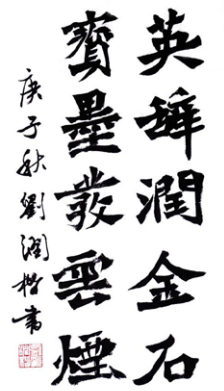 英辭潤金石
寶墨發雲煙
庚子秋劉潤書